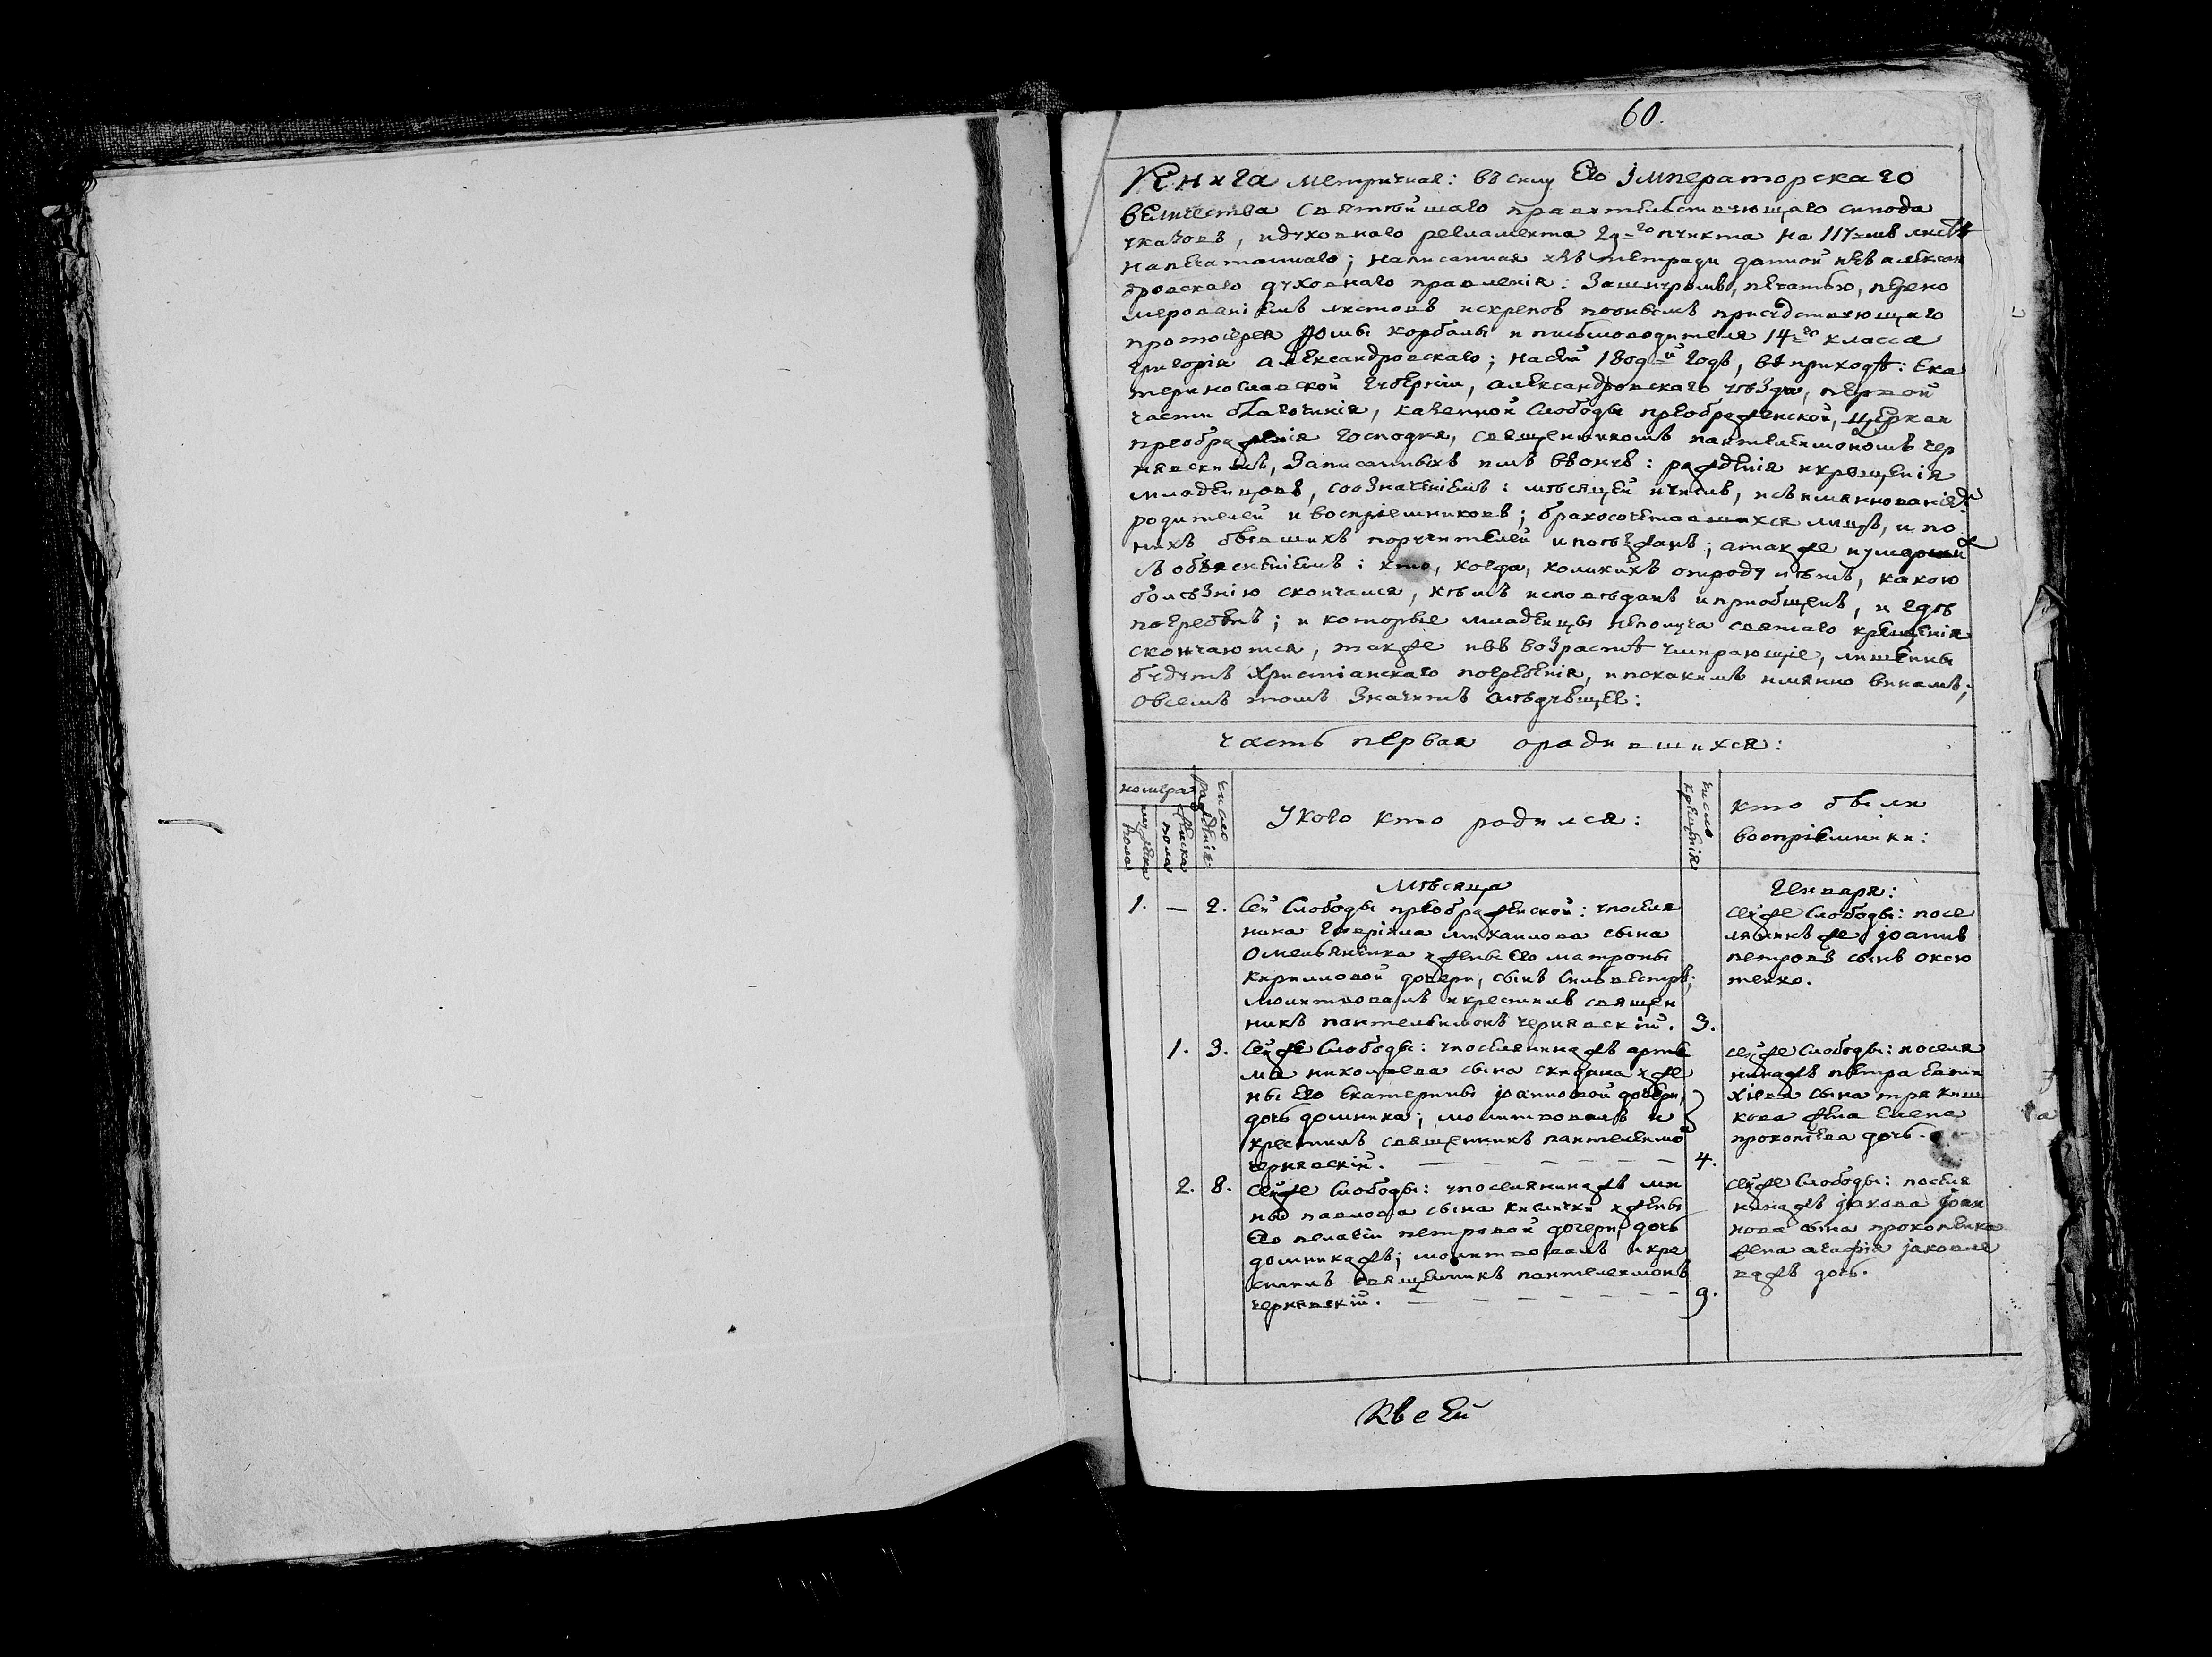 60.
Книга метричная: въ силу Его Імператорскаго
величества святѣйшаго правительствующаго синода
указовъ, и духовнаго регламента 29-го пункта на 117-мъ листѣ
напечатаннаго; написанная въ тетради данной изъ алексан
дровскаго духовнаго правленія: за шнуромъ, печатью, перено
мерованіемъ листовъ и скрепов по онымъ присудствующаго
протоіерея Фомы корбалы и письмоводителя 14-го класса
григорія александровскаго; на сей 1809-й годъ, въ приходѣ: Ека
теринославской губерніи, александровскаго уѣзда, первой
части благочинія, казенной слободы преображенской, церкви
преображенія господня, священникомъ пантелеимономъ чер
нявскимъ, записанныхъ имъ въ оную: рожденія и крещенія
младенцовъ, со означеніемъ: мѣсяцей и числъ, и съ имянованіемъ
родителей и воспріемниковъ; бракосочетавшихся лицъ, и по
нихъ бывшихъ поручителей и поѣзжанъ; а также и умершихъ
съ объясненіемъ: кто, когда, коликихъ отроду лѣтъ, какою
болѣзнію скончался, кѣмъ исповѣданъ и приобщенъ, и гдѣ
погребенъ; и которые младенцы не получа святаго крещенія
скончаются, также и въ возрастѣ умирающіе, лишены
будутъ христіанскаго погребенія, и по какимъ имянно винамъ;
о всемъ томъ значитъ слѣдующее:
часть первая о родившихся:
номера
мужеска пола
женска пола
число рожденія
У кого кто родился:
число крещенія
кто были
воспріемники:
Мѣсяца Генваря:
1. — 2. Сей слободы преображенской: у поселя
нина Гавріила михаилова сына
омельянченка у жены Его матроны
кирилловой дочери, сынъ сильвестръ;
молитвовалъ и крестилъ священ
никъ пантелеимонъ чернявскій. 3.
сей же слободы: посе
лянинъ же іоаннъ
петровъ сынъ оксю
тенко.
1. 3. Сей же слободы: у поселянина жъ арте
ма николаева сына у же
ны Его Екатерины іоанновой дочери,
дочь домника; молитвовалъ и
крестилъ священникъ пантелеимо
чернявскій. — — — — — — 4.
сей же слободы: поселя
нина жъ петра Евти
хіева сына
жена Елена
прокопіева дочь.
2. 8. Сей же слободы: у поселянина жъ ми
ны павлова сына кислички у жены
Его пелагіи петровой дочери, дочь
домника жъ; молитвовалъ и кре
стилъ священникъ пантелеимонъ
чернявскій. — — — — — — 9.
сей же слободы: поселя
нина жъ іакова іоан
нова сына прокопенка
жена агафія іаковле
ва жъ дочь.